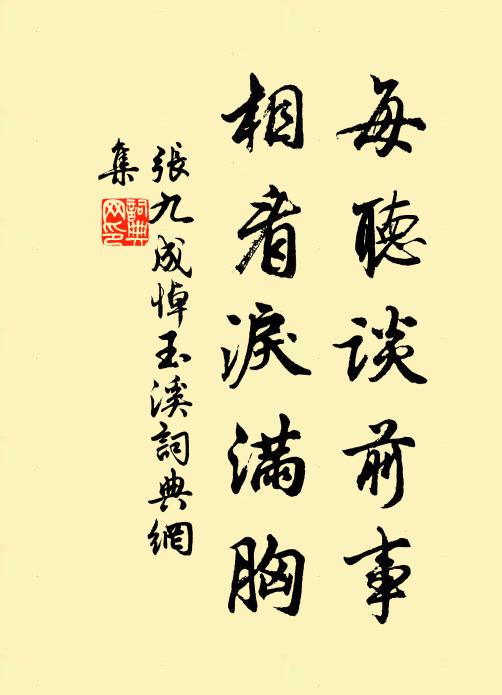 每聽談前事
相看淚滿胸
張九成悼玉溪詞典網
集
詞典
网印